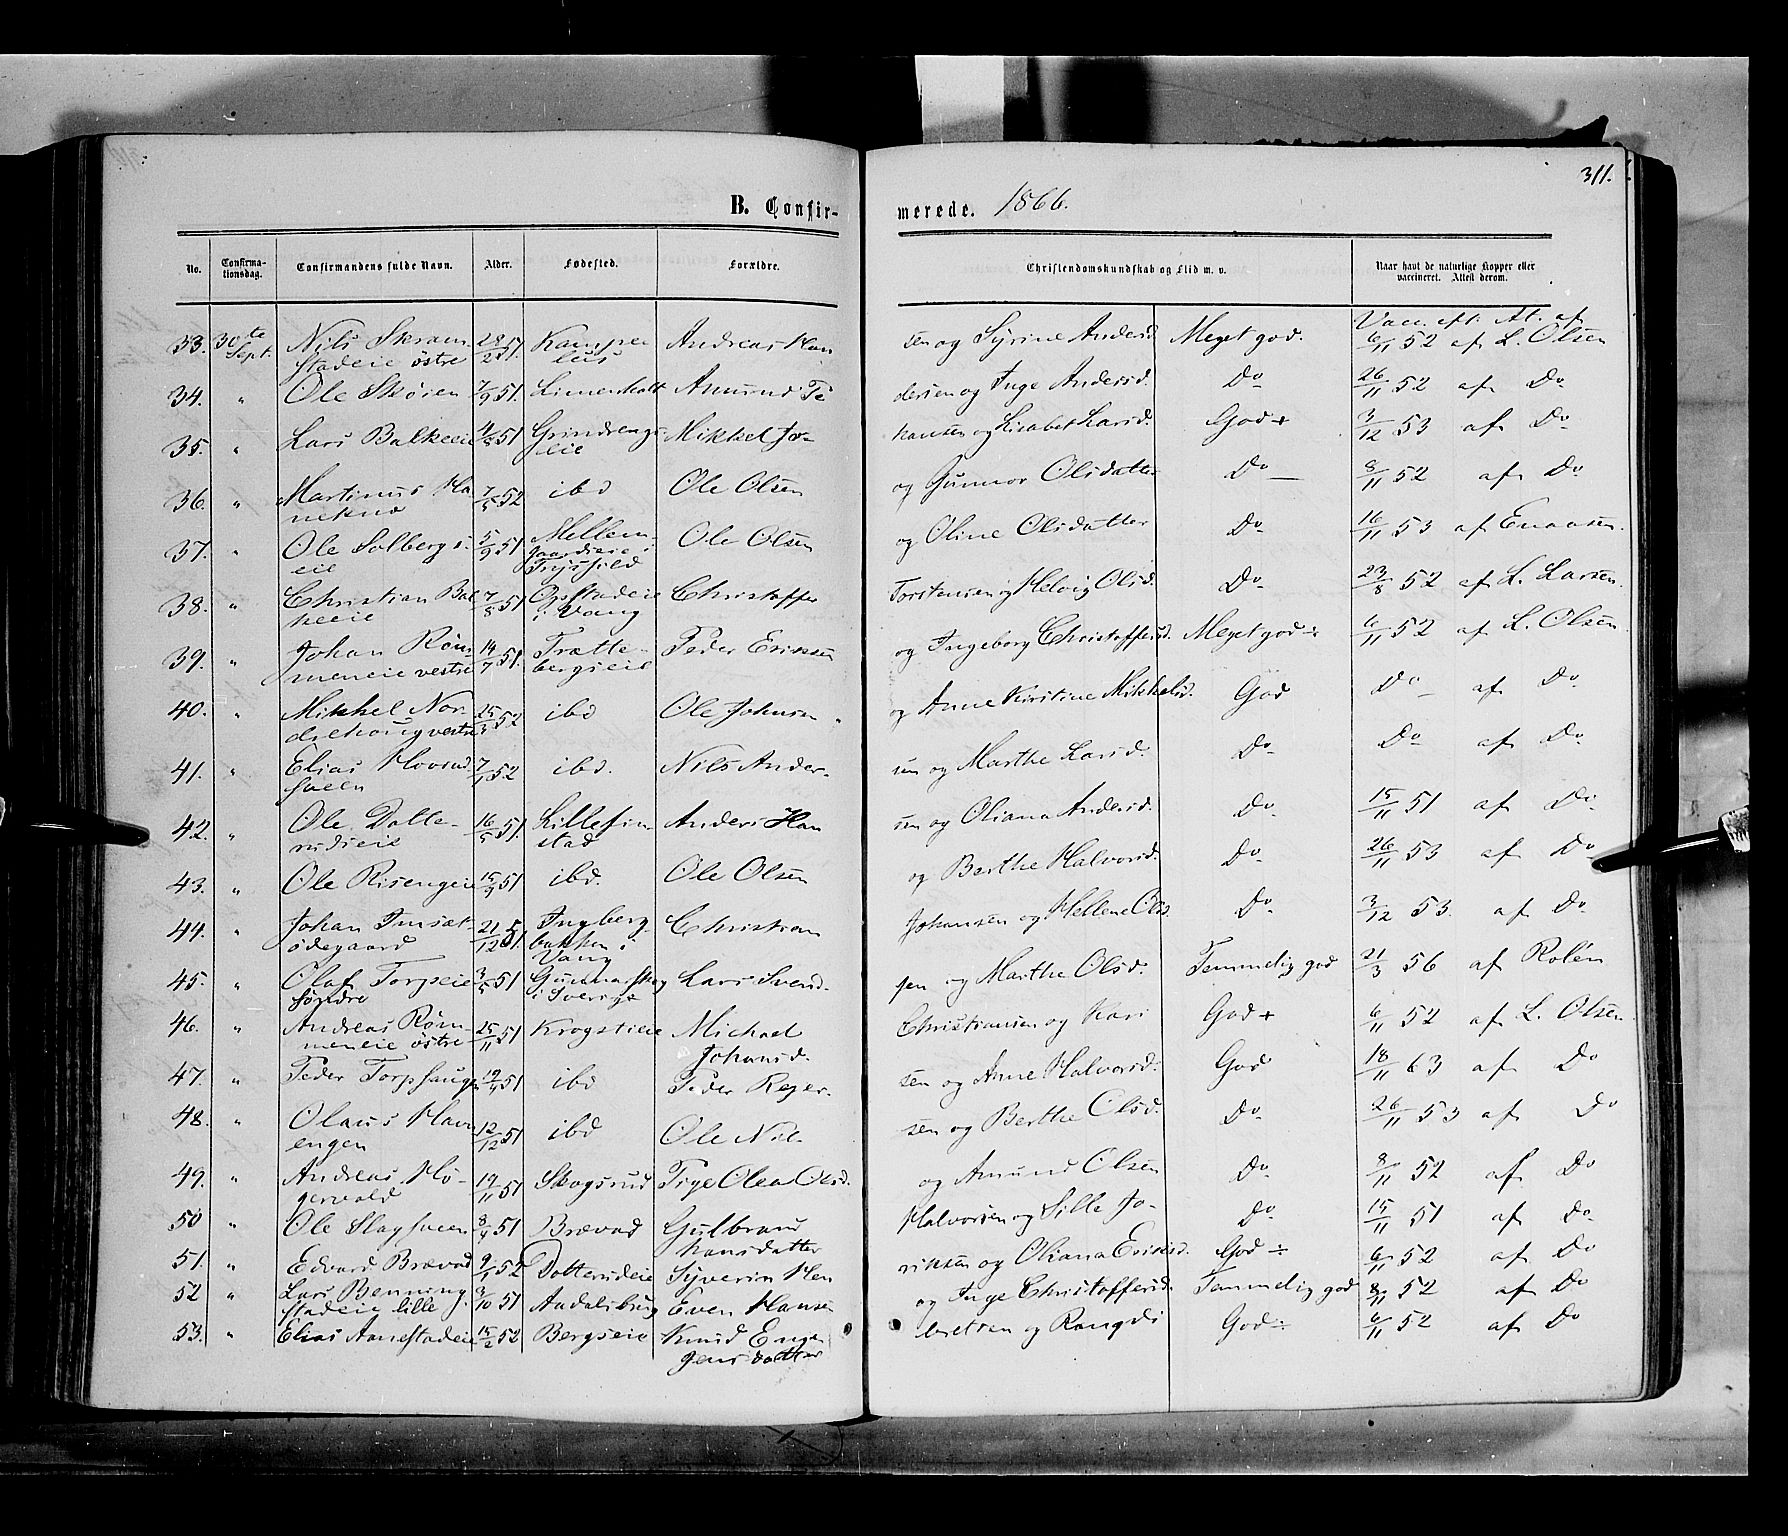 311.
B. Confirmerede. 1866.
No. Confirmationsdag. Confirmandens fulde Navn. Alder. Fødested. Forældre. Christendomskundskab og Flid m. v. Naar havt de naturlige Kopper eller vaccineret. Attest derom.
Vacc. eft. At. af
33. 30te Sept. Nils Skramstadeie östre 28/2 51. Andreas Han sen og Syrine Andersd. Meget god. 6/11 52 af L. Olsen
34. " Ole Skøien 7/9 51. Amund Pe dersen og Inge Andersd. Do 26/11 52 af Do
35. " Lars Balkeeie 4/8 51 Grindvengseie Mikkel Jo- hansen og Lisabet Larsd. God+ 3/12 53 af Do
36. " Martinus 7/5 52 ibd Ole Olsen og Gunnor Olsdatter Do — 8/11 52 af Do
37. " Ole Solbergseie 5/9 51 Mellemgaardseie i Trysfild Ole Olsen og Oline Olsdatter Do 16/11 53 af Enaasen.
38. " Christian Balkeeie 7/8 51 i Vang Christoffer Torstensen og Helvig Olsd. Do 23/8 52 af L. Larsen.
39. " Johan Römmeneie vestre 14/7 51. Trættebergseie Peder Eriksen og Ingeborg Christoffersd. Meget god ÷ 6/11 52 af L. Olsen
40. " Mikkel Nordlehoug vestre 25/3 52 ibd Ole Johnsen og Anne Kirstine Mikkelsd. God Do af Do
41. " Elias Hovsudsveen 7/1 52 ibd. Nils Ander- sen og Marthe Larsd. Do Do af Do
42. " Ole Dollerudseie 16/5 51. Lillefinstad Anders Han sen og Oliana Andersd. Do 15/11 51 af Do
43. " Ole Risengeie 15/9 51 ibd. Ole Olsen og Berthe Halvorsd. Do 26/11 53 af Do
44. " Johan Imsetödegaard 21/12 51. Ingbergbakken i Vang Christian Johansen og Hellene Olsd. Do 3/12 53. af Do
45. " Olaf Torpseie söndre 3/5 51 Gunnarskog i Sverige Lars Svend- sen og Marthe Olsd. Temmelig god 21/3 56 af Rolén
46. " Andreas Römmeneie östre 25/11 51 Krogstieie Michael Christiansen og Kari Johansd. God+ 6/11 52 af L. Olsen
47. " Peder Torpshaugen 19/4 51 ibd Peder Rejer- sen og Anne Halvorsd. God 18/11 63 af Do
48. " Olaus Havnengen 12/12 51 ibd Ole Nil- sen og Berthe Olsd. Do 26/11 53 af Do
49. " Andreas Högervold 19/11 51 Skogsrud Pige Olea Olsd. og Amund Olsen Do 8/11 52 af Do
50 " Ole Slagsveen 8/4 51 Brævad Gulbrand Halvorsen og Sille Jo- hansdatter Do 15/11 51 af Do
51. " Edvard Brævad 9/1 52 Dollerudeie Syverin Hen riksen og Oliana Eriksd. God ÷ 6/11 52 af Do
52 " Lars Benningstadeie lille 8/10 51 Aadalsbrug Even Hansen og Inge Christoffersd. Temmelig god 8/11 52 af Do
53. " Elias Aanestadeie 15/2 52 Bergseie Knud Enge bretsen og Rangdi Jensdatter God ÷ 6/11 52 af Do